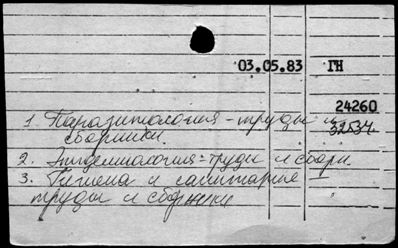 03.05.83 ГН
24260
1 Паразитология - труды и 32534
сборники.
2. Эпидемиология - труды и сборн.
3. Гигиена и санитарные
труды и сборники